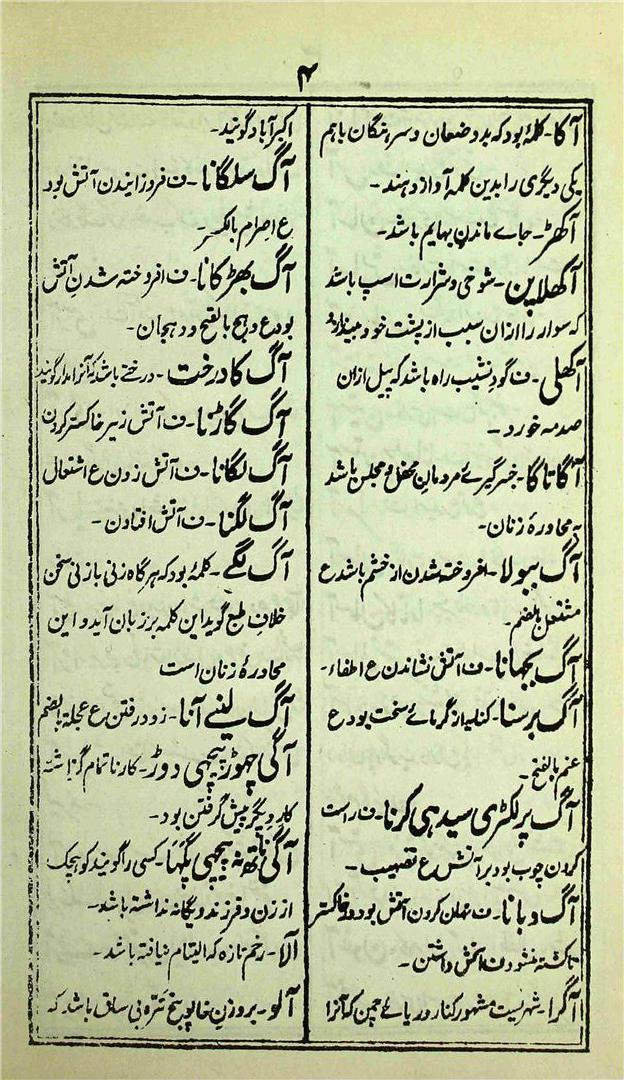 ۴
آکا۔ کلمهٔ بود که بد وضعان و سرہنگان باہم
یکی دیگری را بدین کلمه آواز دہند۔
آکھڑ۔ جاے ماندنِ بہایم باشد۔
آکھلاپن۔ شوخی و شرارت اسپ باشد
که سوار را ازان سبب از پشت خود میندازد
آکھلی۔ ف گوِ نشیب راہ باشد که پیل ازان
صدمه خورد۔
آگاتاگا۔ خبرگیرئے مردمانِ محفل و مجلس باشد
محاورهٔ زنان۔
آگ ببولا۔ افروخته شدن از خشم باشد ع
مشتعل بالضم۔
آگ بجھانا۔ ف آتش نشاندن ع اطفاء۔
آگ برسنا۔ کنایه از گرمائے سخت بود ع
بالفتح۔
آگ پر لکڑی سیدہی کرنا۔ ف راست
کردن چوب بود بر آتش ع تصبیب۔
آگ دبانا۔ ف نہان کردن آتش بود در خاکستر
تا کشته نشود ف آتش داشتن۔
آگرا۔ شہریست مشہور کنار دریائے جمن که آنرا
اکبرآباد گویند۔
آگ سلگانا۔ ف فروزانیدن آتش بود
ع اضرام بالکسر۔
آگ بھڑکانا۔ ف افروخته شدنِ آتش
بود ع وہج بالفتح و وہجان۔
آگ کا درخت۔ درختے باشد که آنرا مدار گویند
آگ گاڑنا۔ ف آتش زیر خاکستر کردن
آگ لگانا۔ ف آتش زدن ع اشتعال
آگ لگنا۔ ف آتش افتادن۔
آگ لگے۔ کلمهٔ بود که ہرگاہ زنی با زنی سخن
خلافِ طبع گوید این کلمه بر زبان آید و این
محاورهٔ زنان است
آگ لینے آنا۔ زود رفتن ع عجلة بالضم
آگی چھوڑ پیچہی دوڑ۔ کار ناتمام گزاشته
کار دیگر پیش گرفتن بود۔
آگی ناتھ نه پیچہی پگہا۔ کسی را گویند کو ہیچک
از زن و فرزند و یگانه نداشته باشد۔
آلا۔ زخم تازہ که التیام نیافته باشد۔
آلو۔ بروزنِ خالو بیخ تره بی ساق باشد که